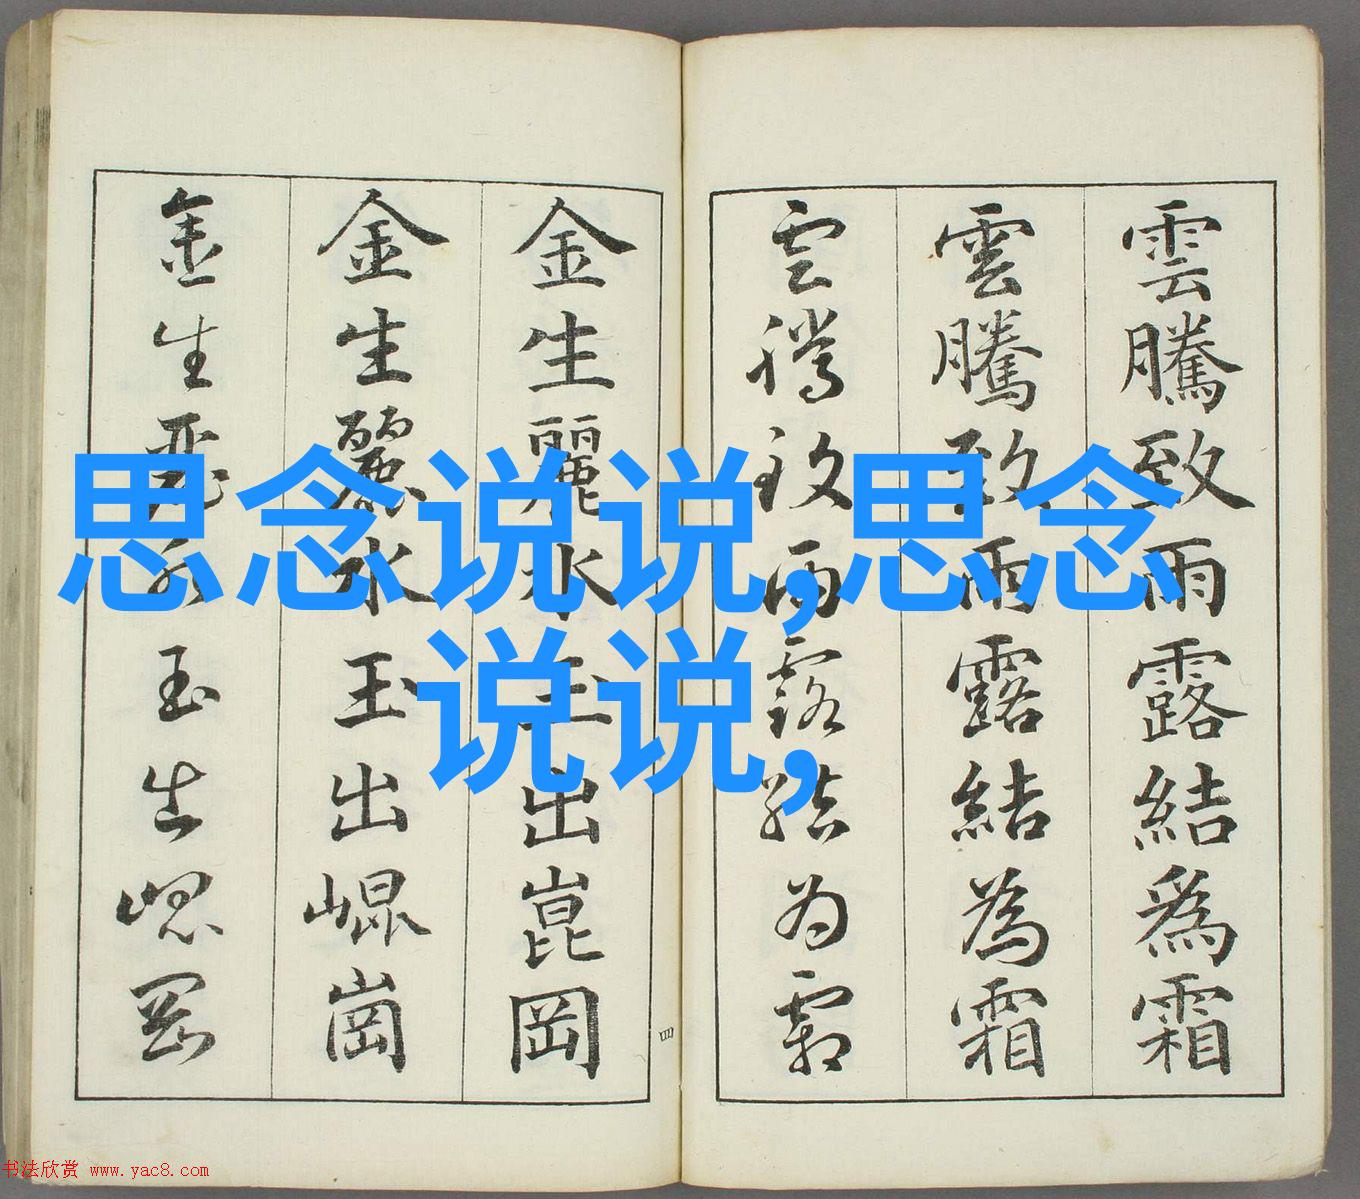 雲騰致雨露結為霜
雲騰致雨露結為霜
雲騰致雨露結為霜
金生麗水玉出崑岡
金生麗水玉出崐崗
金生麗水玉出崐岡
四
思念说说,思念
说说,
书法欣赏 www.yac8.com